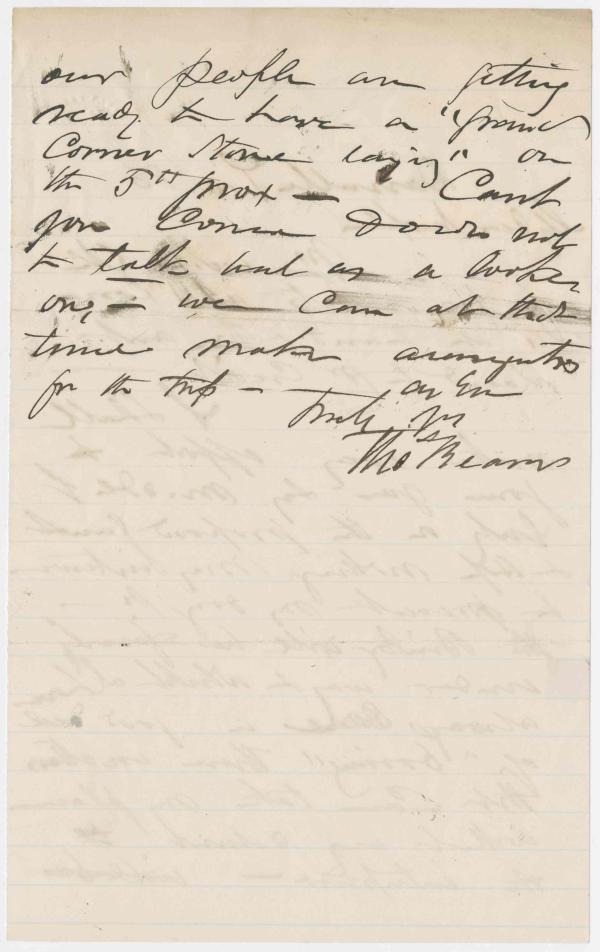 our people are getting
ready to have a "Grand
Corner Stone laying" on
the 5th prox — Cant
you Come Down not
to talk but as a looker
on, — we Can at that
time make arrangmts
for the trip — — as Ever
Truly Yrs
Thos